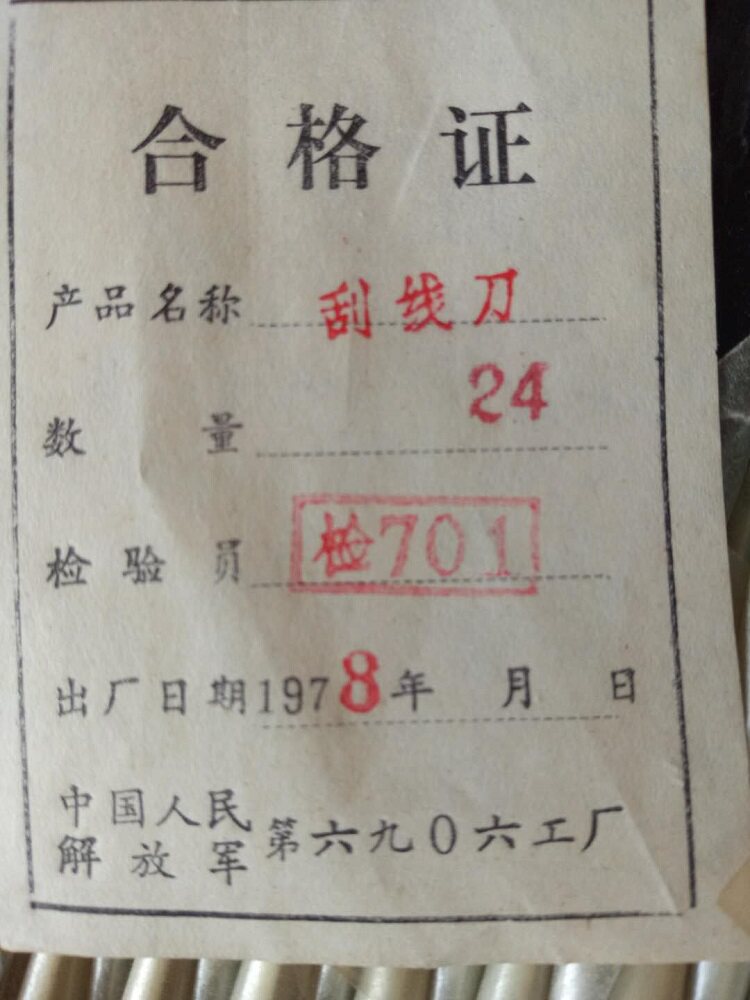 合格证
产品名称 刮线刀
数量 24
检验员 检701
出厂日期1978年 月 日
中国人民解放军第六九〇六工厂